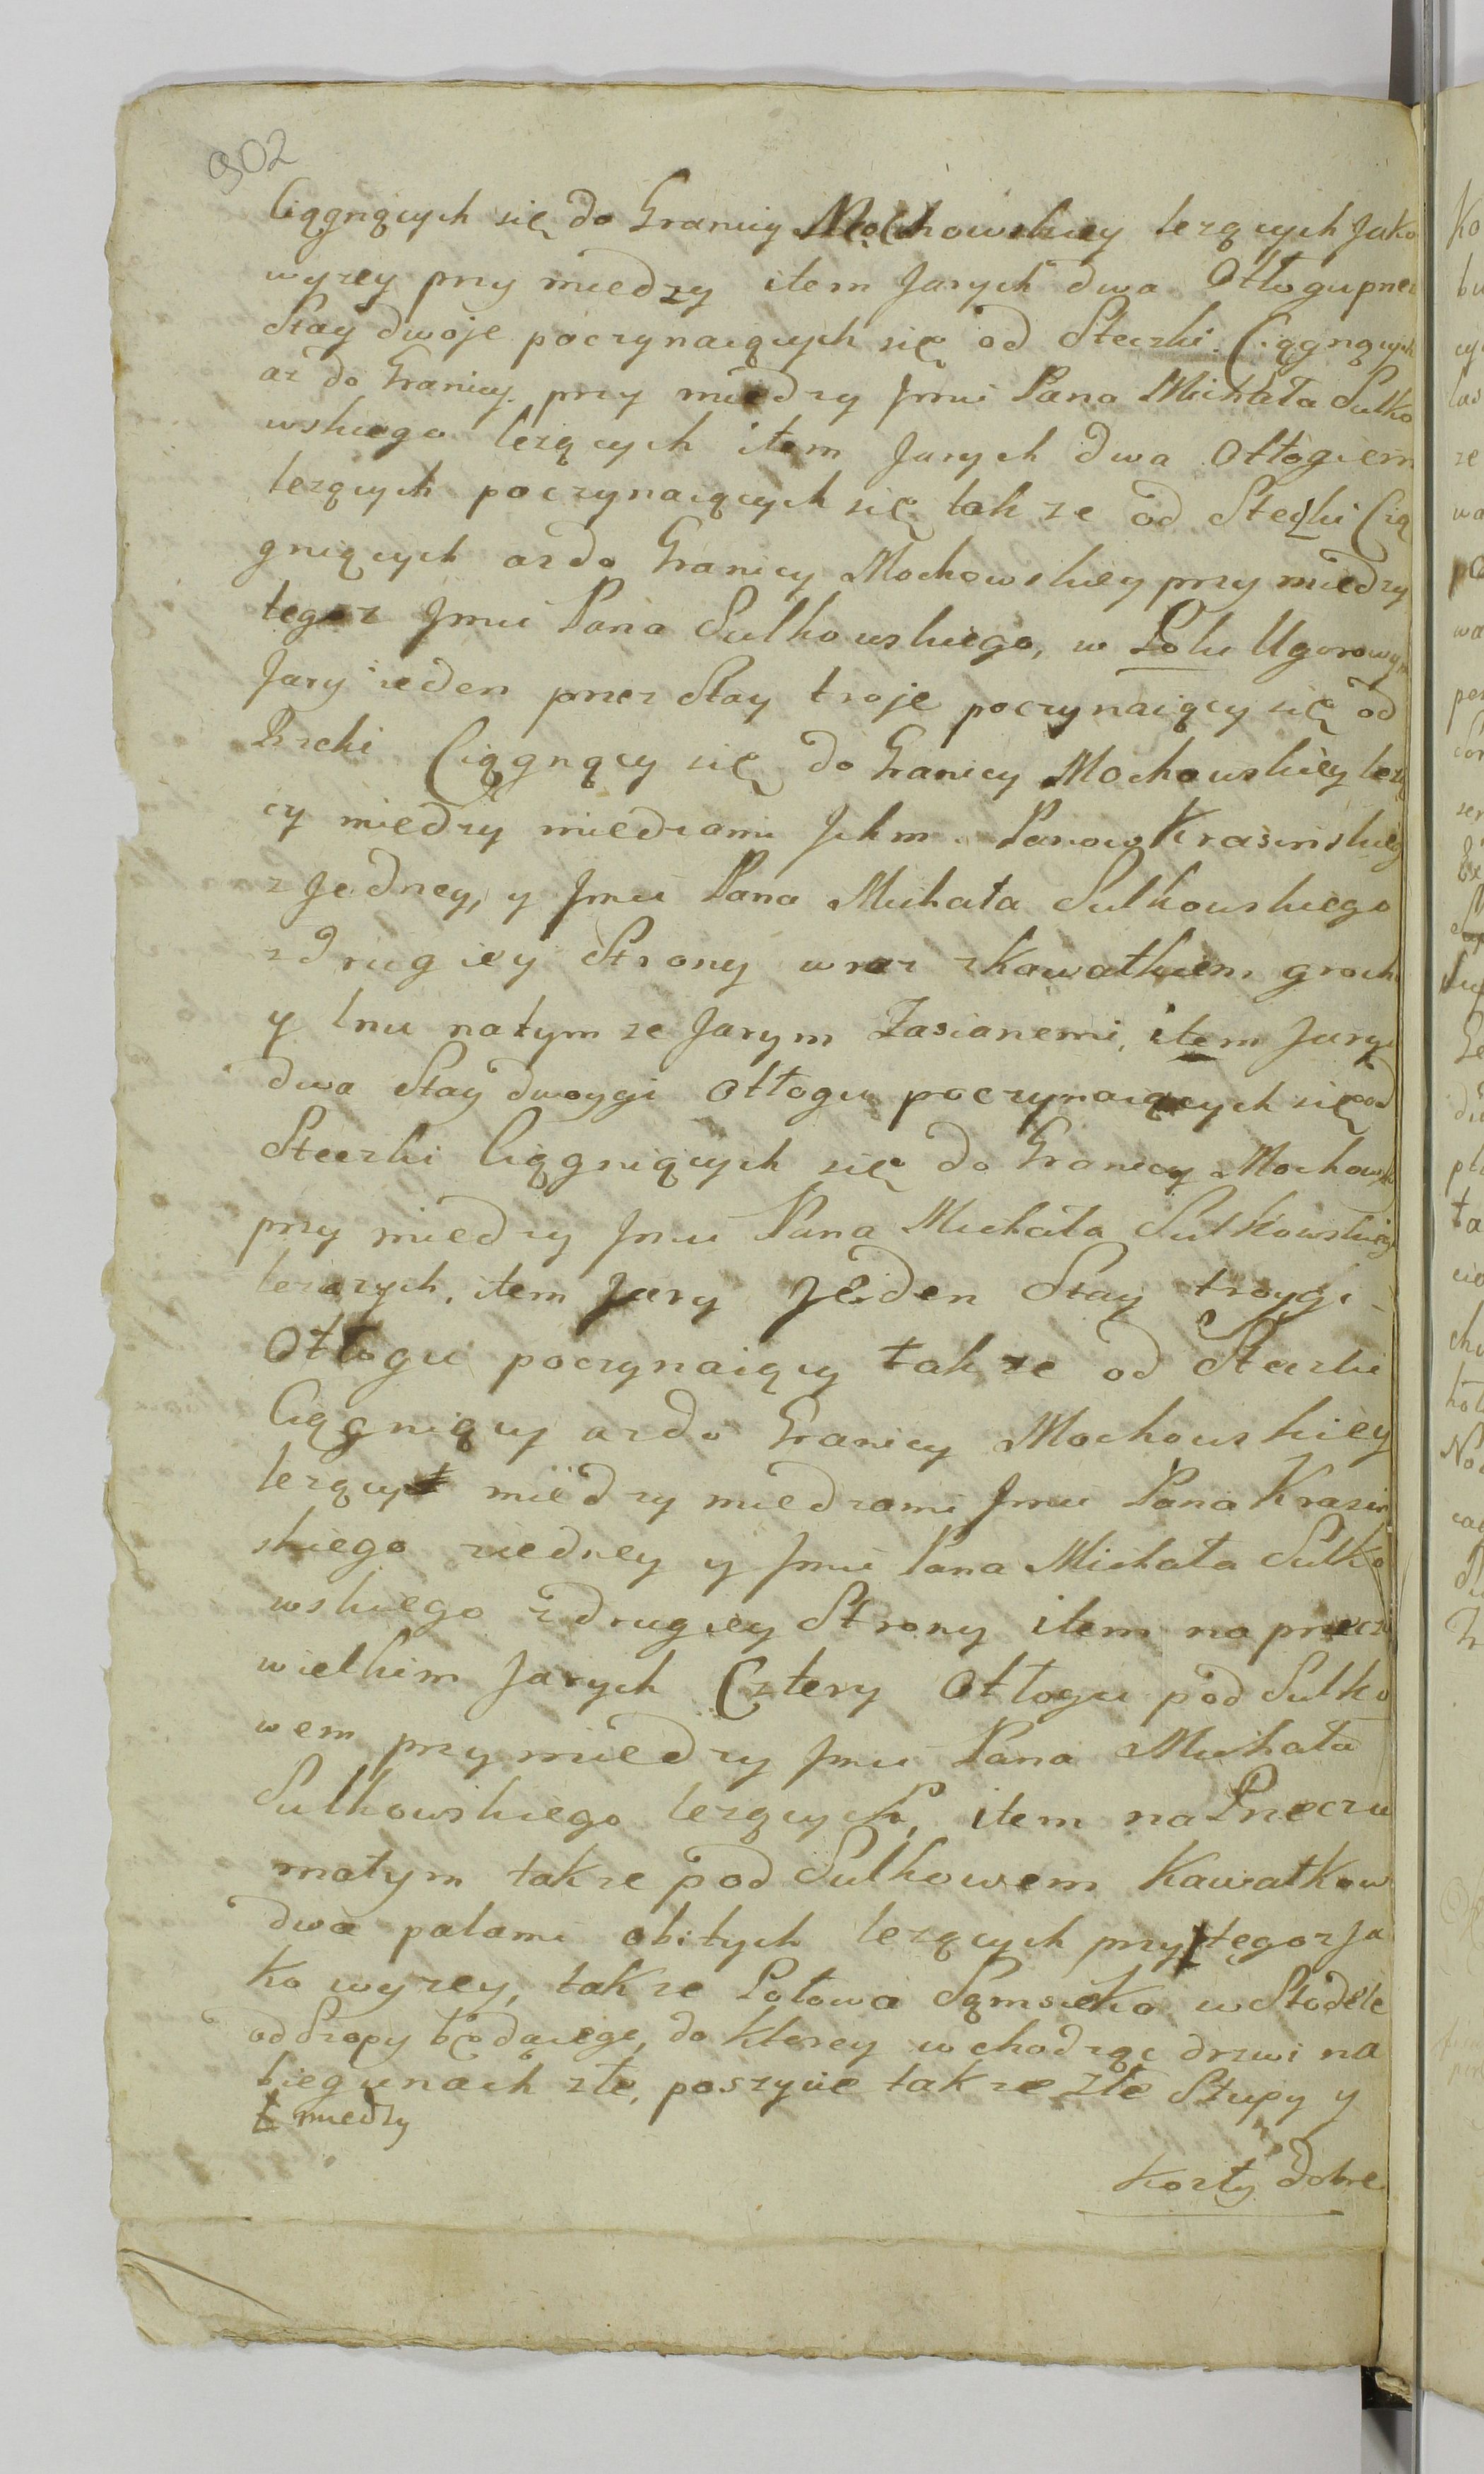 902
Ciągnących się do Granicy Mochowskiey lezących Jako
wyzey przy miedzy item Jarych dwa Otłogu przez
Stay dwoje poczynaiących się od Steczki Ciągnących
az do Granicy przy miedzy Jmci Pana Michała Sulko
wskiego lezących item Jarych dwa Otłogiem
lezących poczynaiących się takze od Steczki Cią
gniących azdo Granicy Mochowskiey przy miedzy
tegoz Jmci Pana Sulkowskiego, w Polu Ugorowym
Jary ieden przez Stay troje poczynaiący się od
Rzeki Ciągnący się do Granicy Mochowskiey lezą
cy miedzy miedzami Jchm Panow Krasinskiey
z Jedney, y Jmci Pana Michała Sulkowskiego
zdrugiey Strony wraz zkawałkiem grochu
y lnu natymze Jarym Zasianemi, item Jarych
dwa Stay dwoygi Otłogu poczynaiących się od
Steczki Ciągniących się do Granicy Mochowskiey
przy miedzy Jmci Pana Michała Sulkowskiego
lezacych, item Jary Jeden Stay troygi
Otłogu poczynaiący takze od Steczki
Ciągniący azdo Granicy Mochowskiey
lezący miedzy miedzami Jmci Pana Krasin
skiego ziedney y Jmci Pana Michała Sulko
wskiego zdrugiey Strony item na przeczu
wielkim Jarych Cztery Otłogu pod Sulko
wem przy miedzy Jmci Pana Michała
Sulkowskiego lezących, item na Przeczu
małym takze pod Sulkowem Kawałkow
dwa palami obitych lezących przy ł tegoz Ja
ko wyzey, takze Połowa Sąmsieka w Stodole
od Szopy będącego, do ktorey wchodząc drzwi na
biegunach złe, poszycie takze złe Słupy y
ł miedzy
Kozły dobre